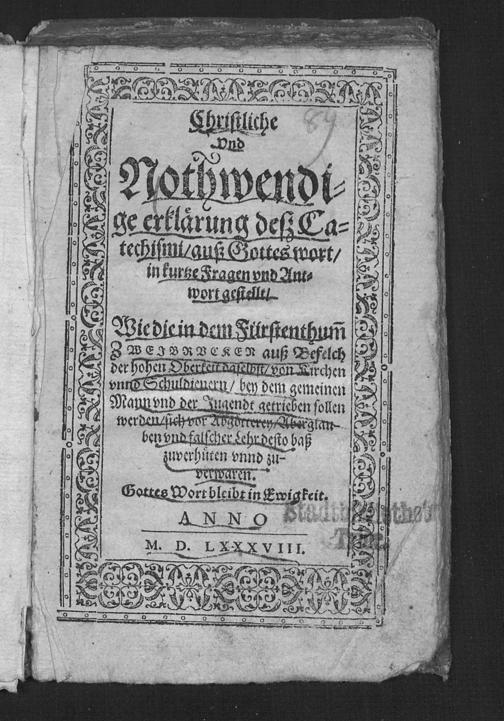 89
Christliche
vnd
Nothwendi-
ge erklärung deß Ca-
techismi/auß Gottes wort/
in kurtze Fragen vnd Ant-
wort gestellt/
Wie die in dem Fürstenthum̃
ZWEIBRVCKEN auß Befelch
der hohen Oberkeit daselbst/von Kirchen
vnnd Schuldienern/ bey dem gemeinen
Mann vnd der Jugendt getrieben sollen
werden/sich vor Abgötterey/Aberglau-
ben vnd falscher Lehr desto baß
zuverhüten vnnd zu-
verwaren.
Gottes Wort bleibt in Ewigkeit.
ANNO
M. D. LXXXVIII.